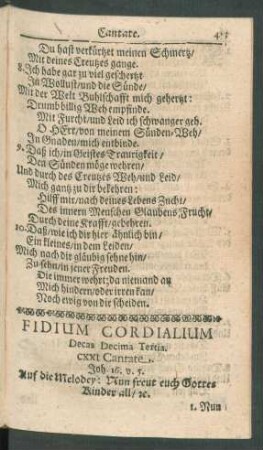 Cantate.
Du hast verkürtzet meinen Schmertz/
Mit deines Creutzes gange.
8. Ich habe gar zu viel geschertzt
In Wollust/und die Sünde/
Mit der Welt Buhlschafft mich gehertzt:
Drumb billig Weh empfinde.
Mit Furcht/und Leid ich schwanger geh.
O HErr/von meinem Sünden-Weh/
In Gnaden/mich entbinde.
9. Daß ich/in Geistes Traurigkeit/
Den Sünden möge wehren/
Und durch des Creutzes Weh/und Leid/
Mich gantz zu dir bekehren:
Hilff mir/nach deines Lebens Zucht/
Des innern Menschen Glaubens-Frucht/
Durch deine Krafft/gebehren.
10. Daß/wie ich dir hier ähnlich bin/
Ein kleines/in dem Leiden/
Mich nach dir gläubig sehne hin/
Zu sehn/in jener Freuden.
Die immer wehrt; da niemand an
Mich hindern/oder irren kan/
Noch ewig von dir scheiden.
FIDIUM CORDIALIUM
Decas Decima Tertia.
CXXI Cantate
Joh. 16. v. 5.
Auf die Melodey: Nun freut euch Gottes
Kinder all/ &c.
1. Nun